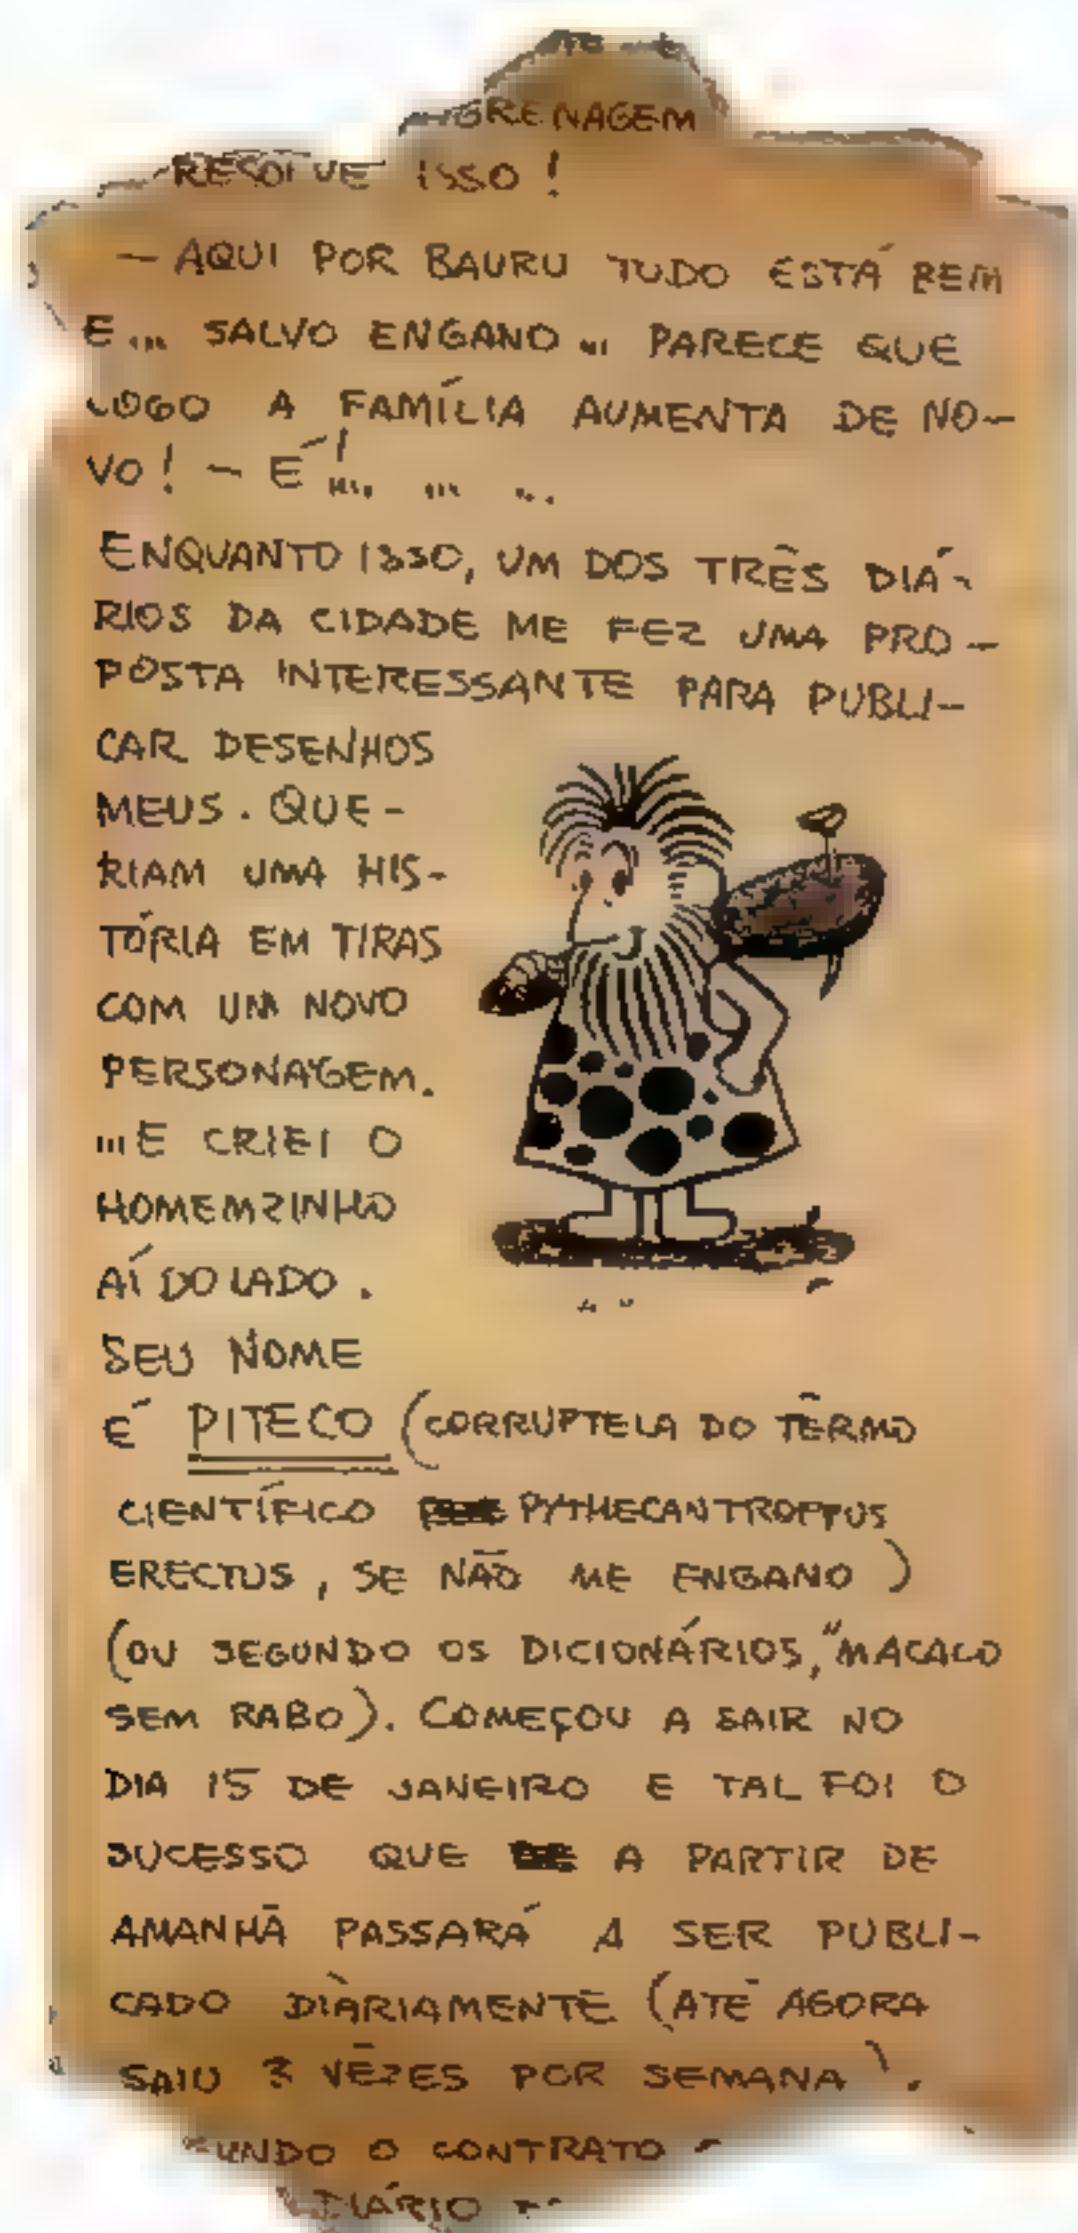 ENGRENAGEM
RESOLVE ISSO!
— AQUI POR BAURU TUDO ESTÁ BEM
E... SALVO ENGANO... PARECE QUE
LOGO A FAMÍLIA AUMENTA DE NO-
VO! — É!... ... ...
ENQUANTO ISSO, UM DOS TRÊS DIÁ-
RIOS DA CIDADE ME FEZ UMA PRO-
POSTA INTERESSANTE PARA PUBLI-
CAR DESENHOS
MEUS. QUE-
RIAM UMA HIS-
TÓRIA EM TIRAS
COM UM NOVO
PERSONAGEM.
...E CRIEI O
HOMEMZINHO
AÍ DO LADO.
SEU NOME
É PITECO (CORRUPTELA DO TÊRMO
CIENTÍFICO PYTHECANTROPPUS
ERECTUS, SE NÃO ME ENGANO)
(OU SEGUNDO OS DICIONÁRIOS, "MACACO
SEM RABO). COMEÇOU A SAIR NO
DIA 15 DE JANEIRO E TAL FOI O
SUCESSO QUE A PARTIR DE
AMANHÃ PASSARÁ A SER PUBLI-
CADO DIÀRIAMENTE (ATÉ AGORA
SAIU 3 VÊZES POR SEMANA).
O CONTRATO
DIÁRIO